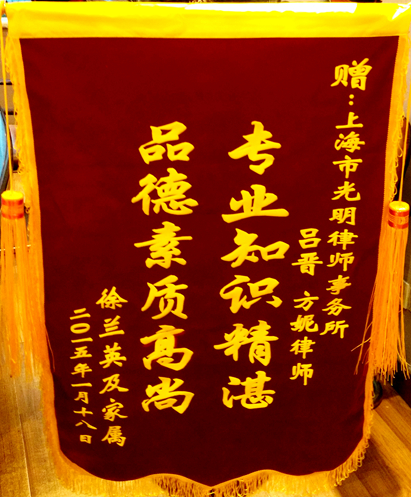 赠：上海市光明律师事务所
吕晋 方妮律师
专业知识精湛
品德素质高尚
徐兰英及家属
二〇一五年一月十八日